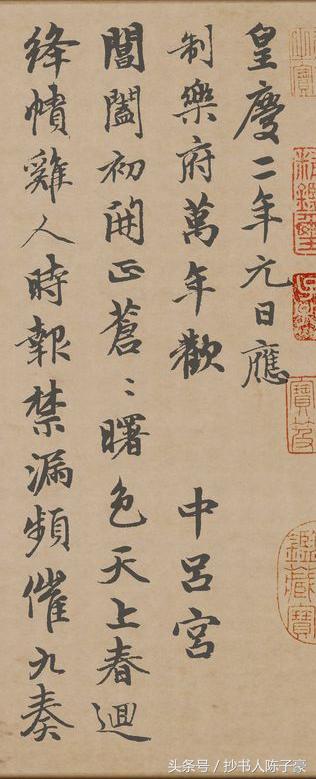 皇慶二年元日應
制樂府萬年歡 中呂宮
閶闔初開正蒼〻曙色天上春迴
絳幘雞人時報禁漏頻催九奏
寶笈
鑑藏寶
头条号 / 抄书人陈子豪